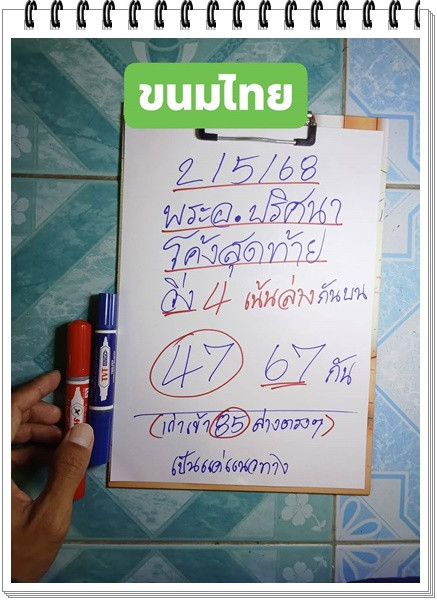 ขนมไทย
2/5/68
พระอ.ปริศนา
โค้งสุดท้าย
วิ่ง 4 เน้นล่างกันบน
47 67 กัน
(เก่าเข้า 85 ล่างตรงๆ)
เป็นแค่แนวทาง
TVT